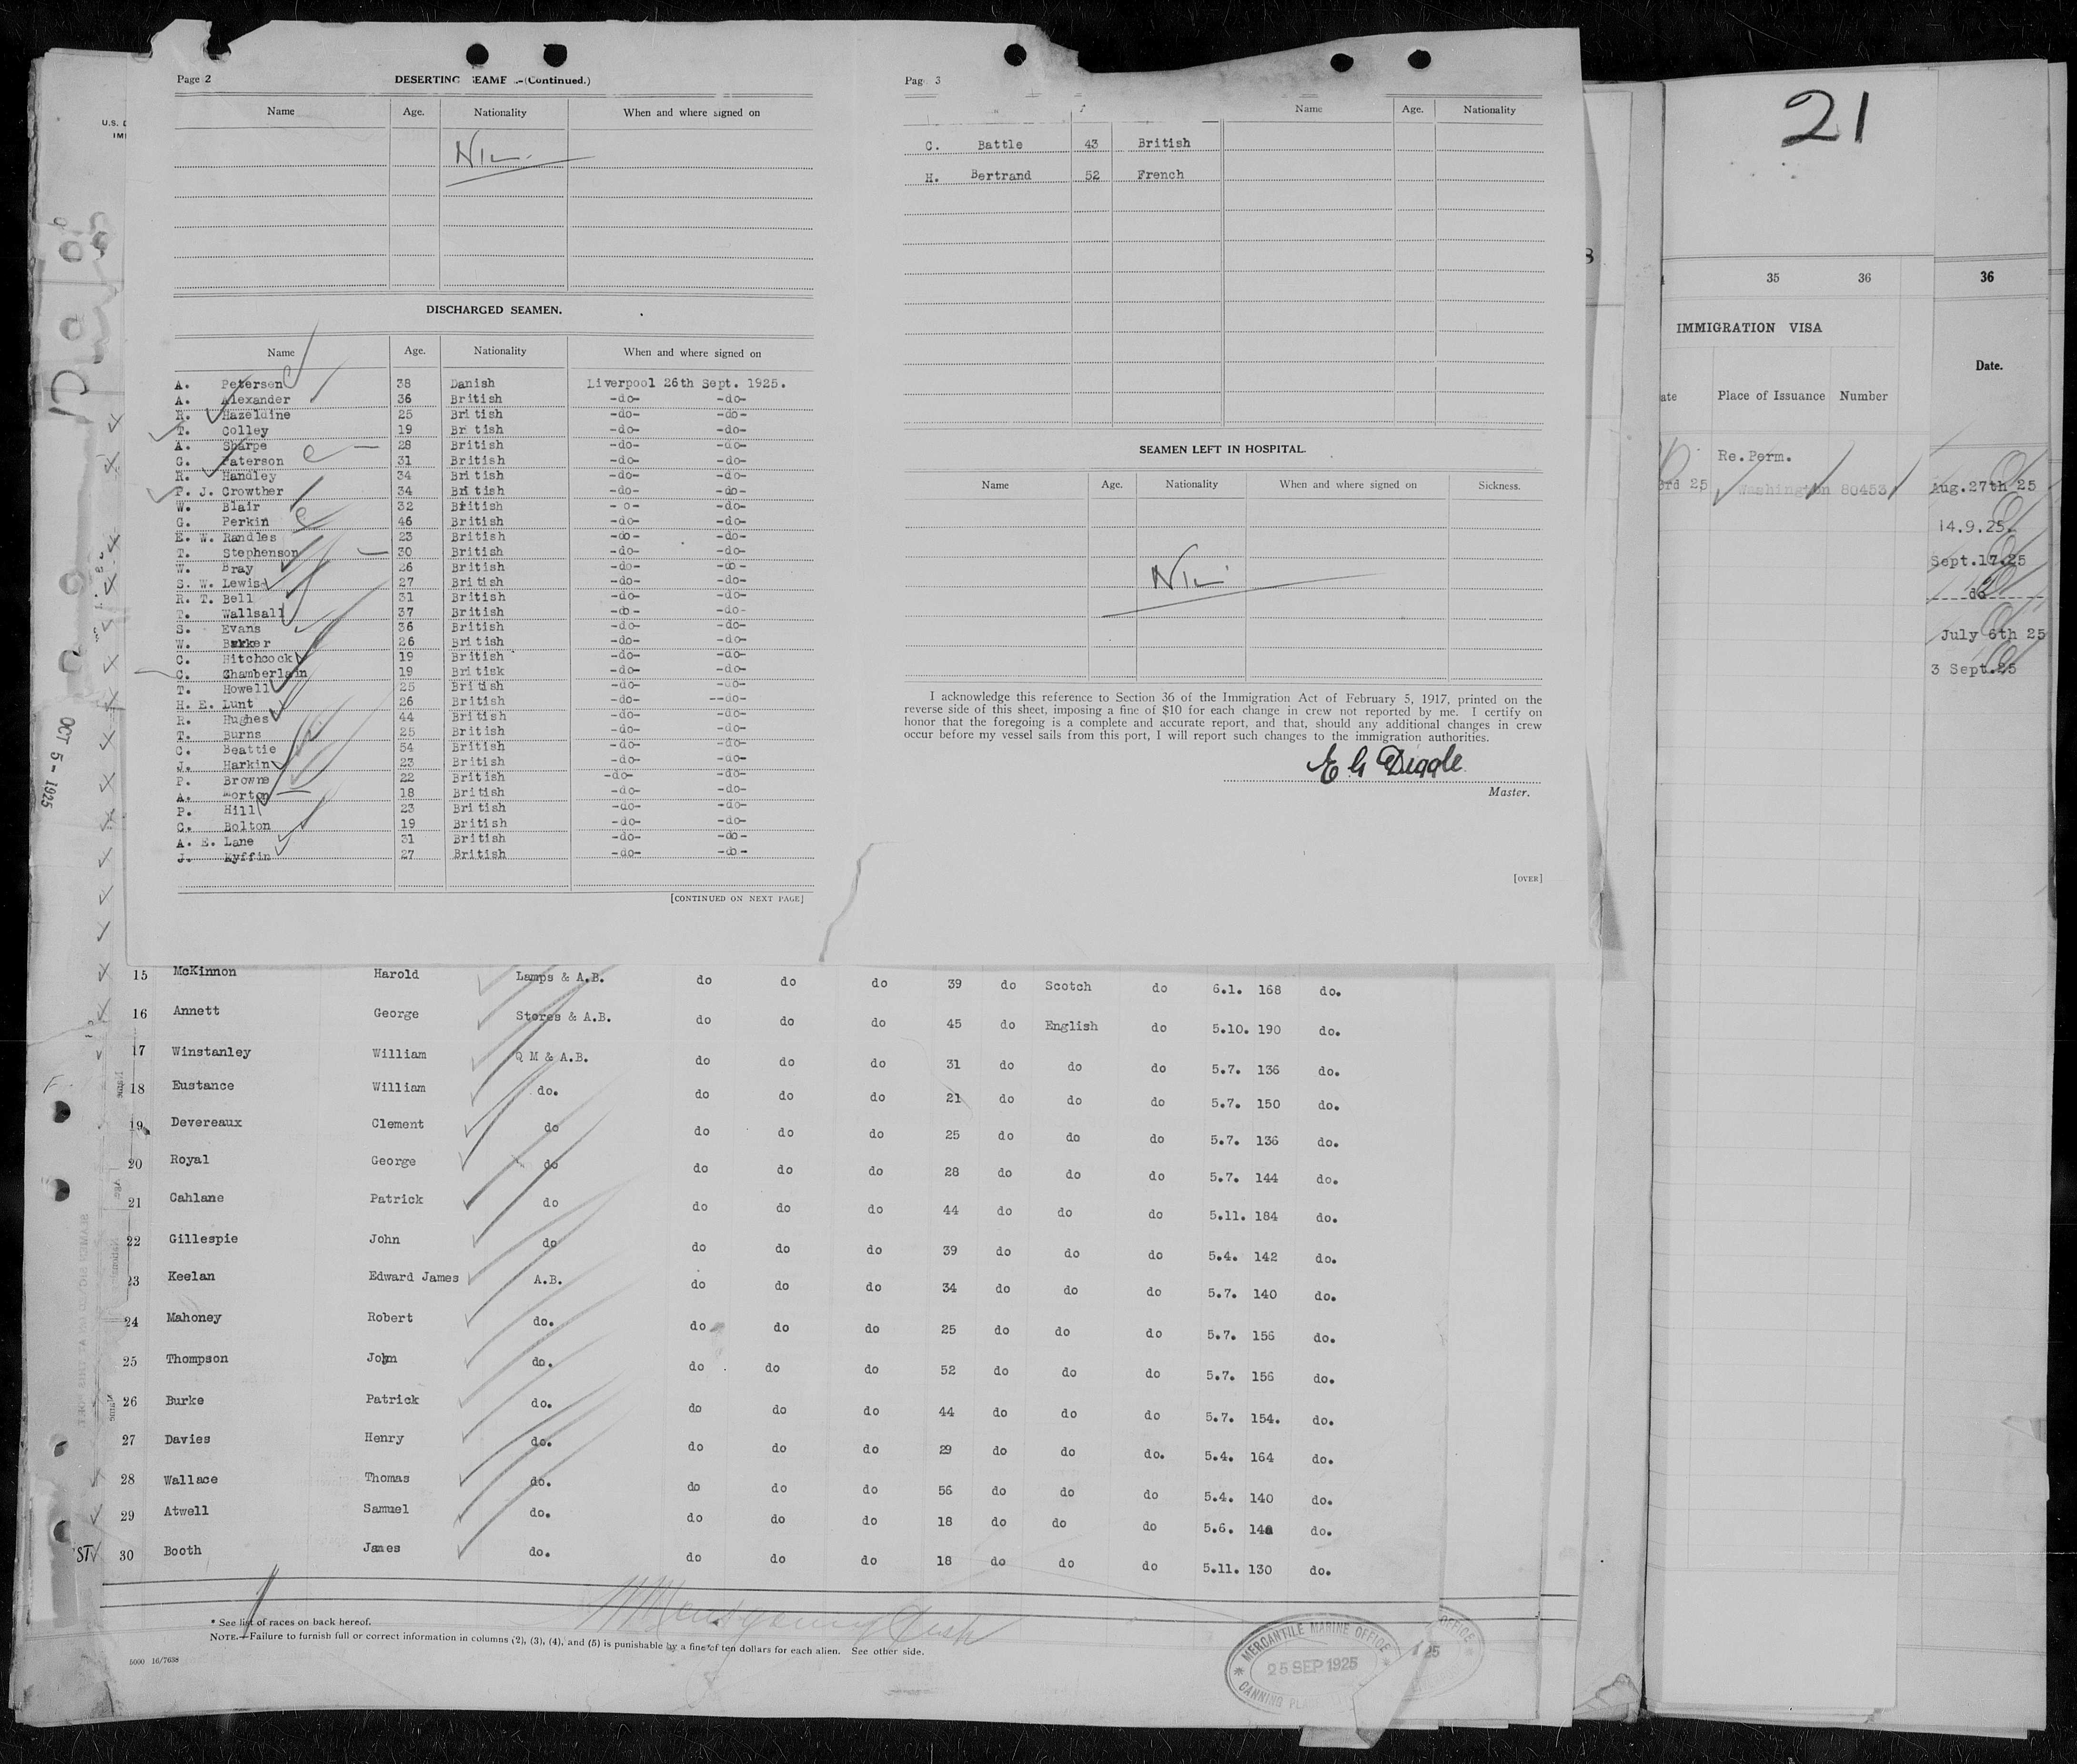 Page 2
DESERTING SEAME .-(Continued.)
Name Age. Nationality When and where signed on
Nil
DISCHARGED SEAMEN.
Name Age. Nationality When and where signed on
A. Petersen 38 Danish Liverpool 26th Sept. 1925.
A. Alexander 36 British -do- -do-
R. Hazeldine 25 British -do- -do-
T. Colley 19 Br tish -do- -do-
A. Sharpe 28 British -do- -do-
G. Paterson 31 British -do- -do-
R. Handley 34 British -do- -do-
F. J. Crowther 34 British -do- -do-
W. Blair 32 British - o- -do-
G. Perkin 46 British -do- -do-
E. W. Randles 23 British -do- -do-
T. Stephenson 30 British -do- -do-
W. Bray 26 British -do- -do-
S. W. Lewis 27 British -do- -do-
R. T. Bell 31 British -do- -do-
T. Wallsall 37 British -do- -do-
S. Evans 36 British -do- -do-
W. Barker 26 British -do- -do-
C. Hitchcock 19 British -do- -do-
C. Chamberlain 19 Britisk -do- -do-
T. Howell 25 British -do- -do-
H. E. Lunt 26 British -do- --do-
R. Hughes 44 British -do- -do-
T. Burns 25 British -do- -do-
C. Beattie 54 British -do- -do-
J. Harkin 23 British -do- -do-
P. Browne 22 British -do- -do-
A. Morton 18 British -do- -do-
P. Hill 23 British -do- -do-
C. Bolton 19 British -do- -do-
A. E. Lane 31 British -do- -do-
J. Kyffin 27 British -do- -do-
[CONTINUED ON NEXT PAGE]
Pag 3
Name Age. Nationality
C. Battle 43 British
H. Bertrand 52 French
SEAMEN LEFT IN HOSPITAL.
Name Age. Nationality When and where signed on Sickness.
Nil
I acknowledge this reference to Section 36 of the Immigration Act of February 5, 1917, printed on the
reverse side of this sheet, imposing a fine of $10 for each change in crew not reported by me. I certify on
honor that the foregoing is a complete and accurate report, and that, should any additional changes in crew
occur before my vessel sails from this port, I will report such changes to the immigration authorities.
E G Diggle
Master.
[OVER]
21
35 36
IMMIGRATION VISA
ate Place of Issuance Number
Re.Perm.
3rd 25 Washington 80453
36
Date.
Aug.27th 25
14.9.25.
Sept.17.25
do
July 6th 25
3 Sept.25
U.S. D
IMI
OCT 5 - 1925
15 McKinnon Harold Lamps & A.B. do do do 39 do Scotch do 6.1. 168 do.
16 Annett George Stores & A.B. do do do 45 do English do 5.10. 190 do.
17 Winstanley William Q M & A.B. do do do 31 do do do 5.7. 136 do.
18 Eustance William do. do do do 21 do do do 5.7. 150 do.
19 Devereaux Clement do do do do 25 do do do 5.7. 136 do.
20 Royal George do do do do 28 do do do 5.7. 144 do.
21 Cahlane Patrick do do do do 44 do do do 5.11. 184 do.
22 Gillespie John do do do do 39 do do do 5.4. 142 do.
23 Keelan Edward James A.B. do do do 34 do do do 5.7. 140 do.
24 Mahoney Robert do. do do do 25 do do do 5.7. 156 do.
25 Thompson John do. do do do 52 do do do 5.7. 156 do.
26 Burke Patrick do. do do do 44 do do do 5.7. 154. do.
27 Davies Henry do. do do do 29 do do do. 5.4. 164 do.
28 Wallace Thomas do. do do do 56 do do do 5.4. 140 do.
29 Atwell Samuel do. do do do 18 do do do 5.6. 148 do.
30 Booth James do. do do do 18 do do do 5.11. 130 do.
* See list of races on back hereof.
NOTE.—Failure to furnish full or correct information in columns (2), (3), (4), and (5) is punishable by a fine of ten dollars for each alien. See other side.
5000 16/7638
MERCANTILE MARINE OFFICE
25 SEP 1925
CANNING PLA
OFFICE
25